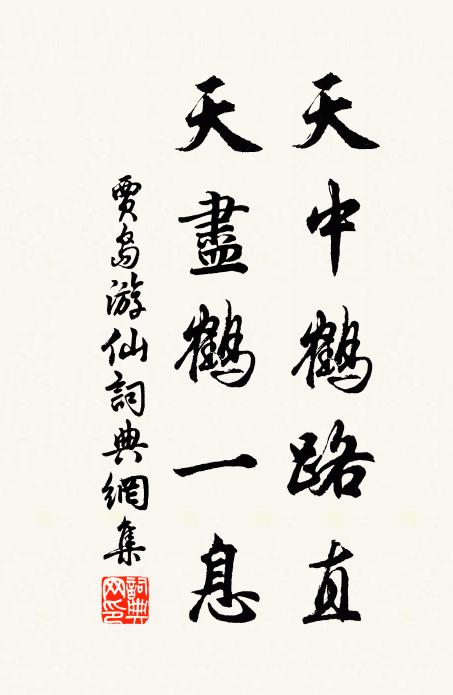 天中鶴路直
天盡鶴一息
賈島游仙詞典網集
詞典网印